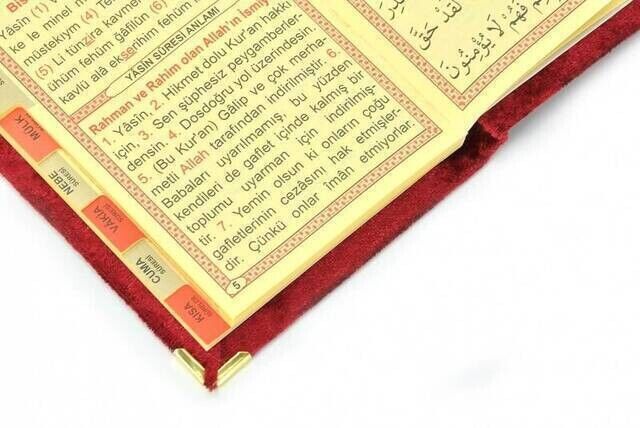 Yâsîn (1)
ke le minel m
müstekıym (4) Te
(5) Li tünzira kavmer
ühüm fehüm gâfilûn (6)
kavlü alâ ekserihim fehüm
YÂSÎN SÛRESİ ANLAMI
Rahman ve Rahîm olan Allah'ın İsmiy
1. Yâsîn, 2. Hikmet dolu Kur'an hakkı
için, 3. Sen şüphesiz peygamberler-
densin. 4. Dosdoğru yol üzerindesin.
5. (Bu Kur'an) Gâlip ve çok merha-
metli Allah tarafından indirilmiştir. 6.
Babaları uyarılmamış, bu yüzden
kendileri de gaflet içinde kalmış bir
toplumu uyarman için indirilmiş-
tir. 7. Yemin olsun ki onların çoğu
gafletlerinin cezasını hak etmişler-
dir. Çünkü onlar îmân etmiyorlar.
5
لَقَدْ حَقَّ
فَهُمْ لَا يُؤْمِنُونَ
MÜLK
NEBE
SÛRESİ
VÂKIA
SÛRESİ
CUMA
SÛRESİ
KISA
SÛRELER